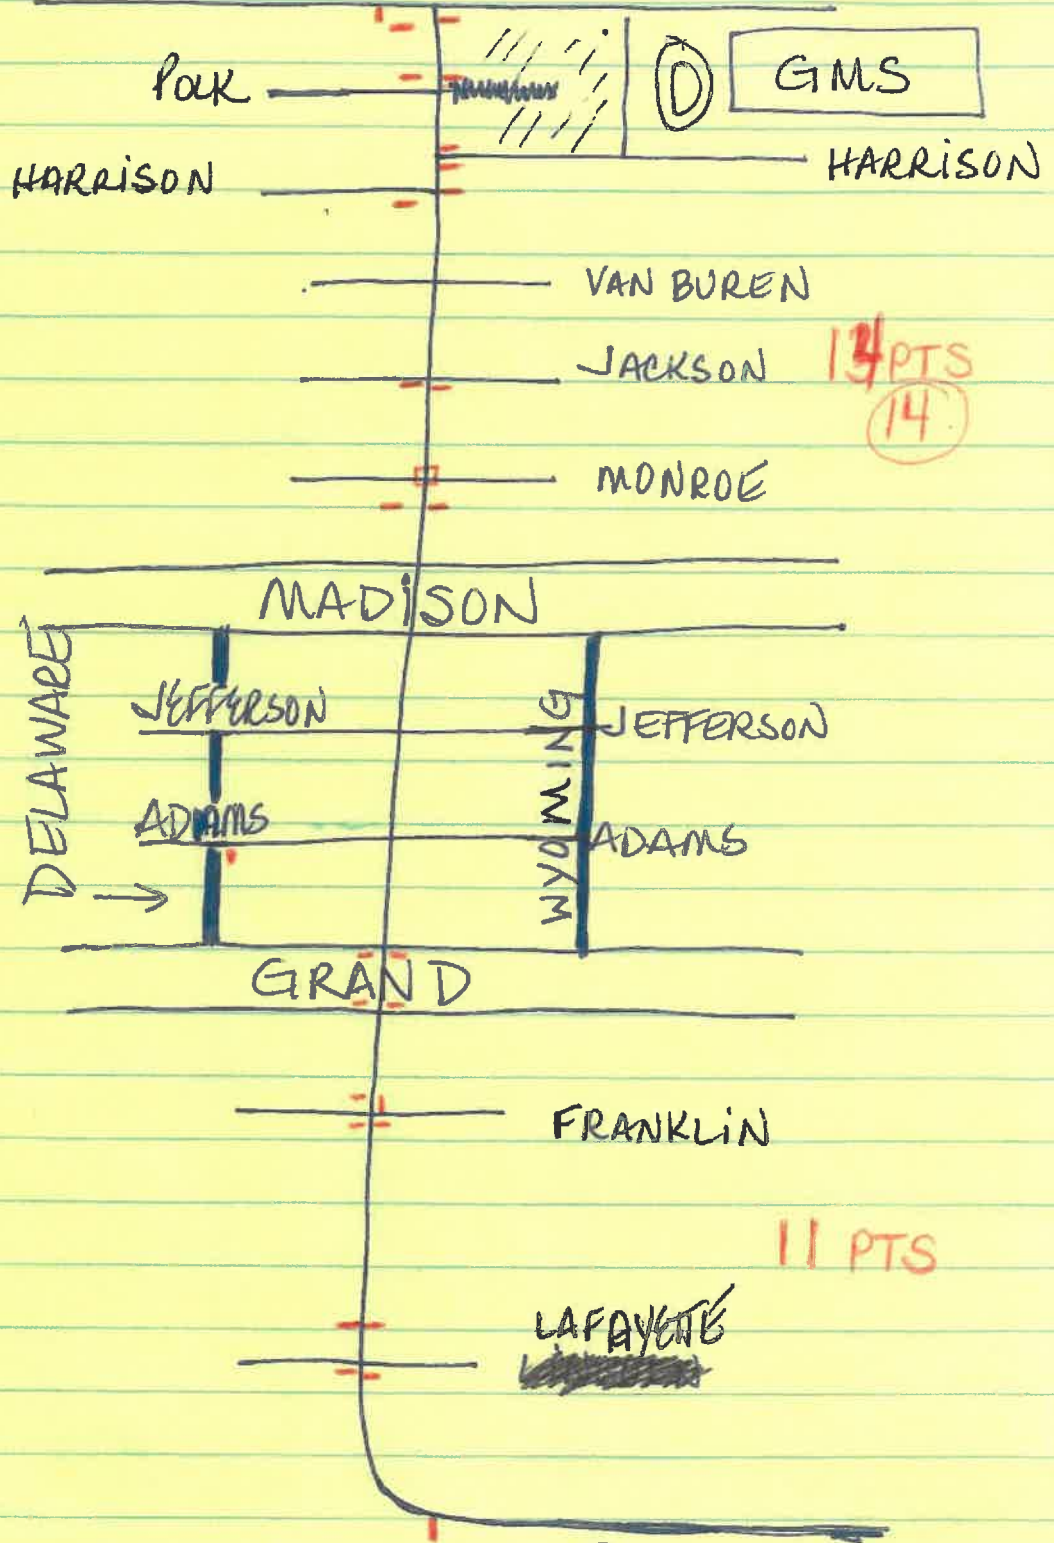 POLK
D
GMS
HARRISON
HARRISON
VAN BUREN
JACKSON
PTS
14
MONROE
MADISON
DELAWARE
JEFFERSON
WYOMING
JEFFERSON
ADAMS
ADAMS
GRAND
FRANKLIN
11 PTS
LAFAYETTE